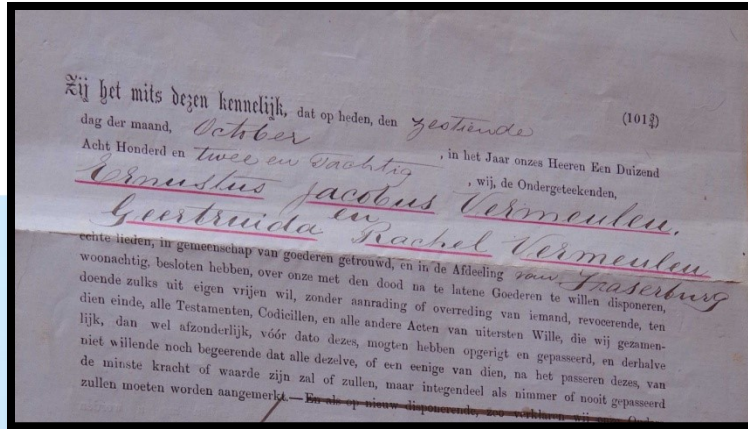 Zij het mits dezen kennelijk, dat op heden, den zestiende (101¾)
dag der maand, October , in het Jaar onzes Heeren Een Duizend
Acht Honderd en twee en Tachtig , wij, de Ondergeteekenden,
Ernustus Jacobus Vermeulen,
en
Geertruida Rachel Vermeulen
echte lieden, in gemeenschap van goederen getrouwd, en in de Afdeeling van Fraserburg
woonachtig, besloten hebben, over onze met den dood na te latene Goederen te willen disponeren,
doende zulks uit eigen vrijen wil, zonder aanrading of overreding van iemand, revocerende, ten
dien einde, alle Testamenten, Codicillen, en alle andere Acten van uitersten Wille, die wij gezamen-
lijk, dan wel afzonderlijk, vóór dato dezes, mogten hebben opgerigt en gepasseerd, en derhalve
niet willende noch begeerende dat alle dezelve, of een eenige van dien, na het passeren dezes, van
de minste kracht of waarde zijn zal of zullen, maar integendeel als nimmer of nooit gepasseerd
zullen moeten worden aangemerkt.—En als op nieuw disponerende, zoo verklaren wij onze